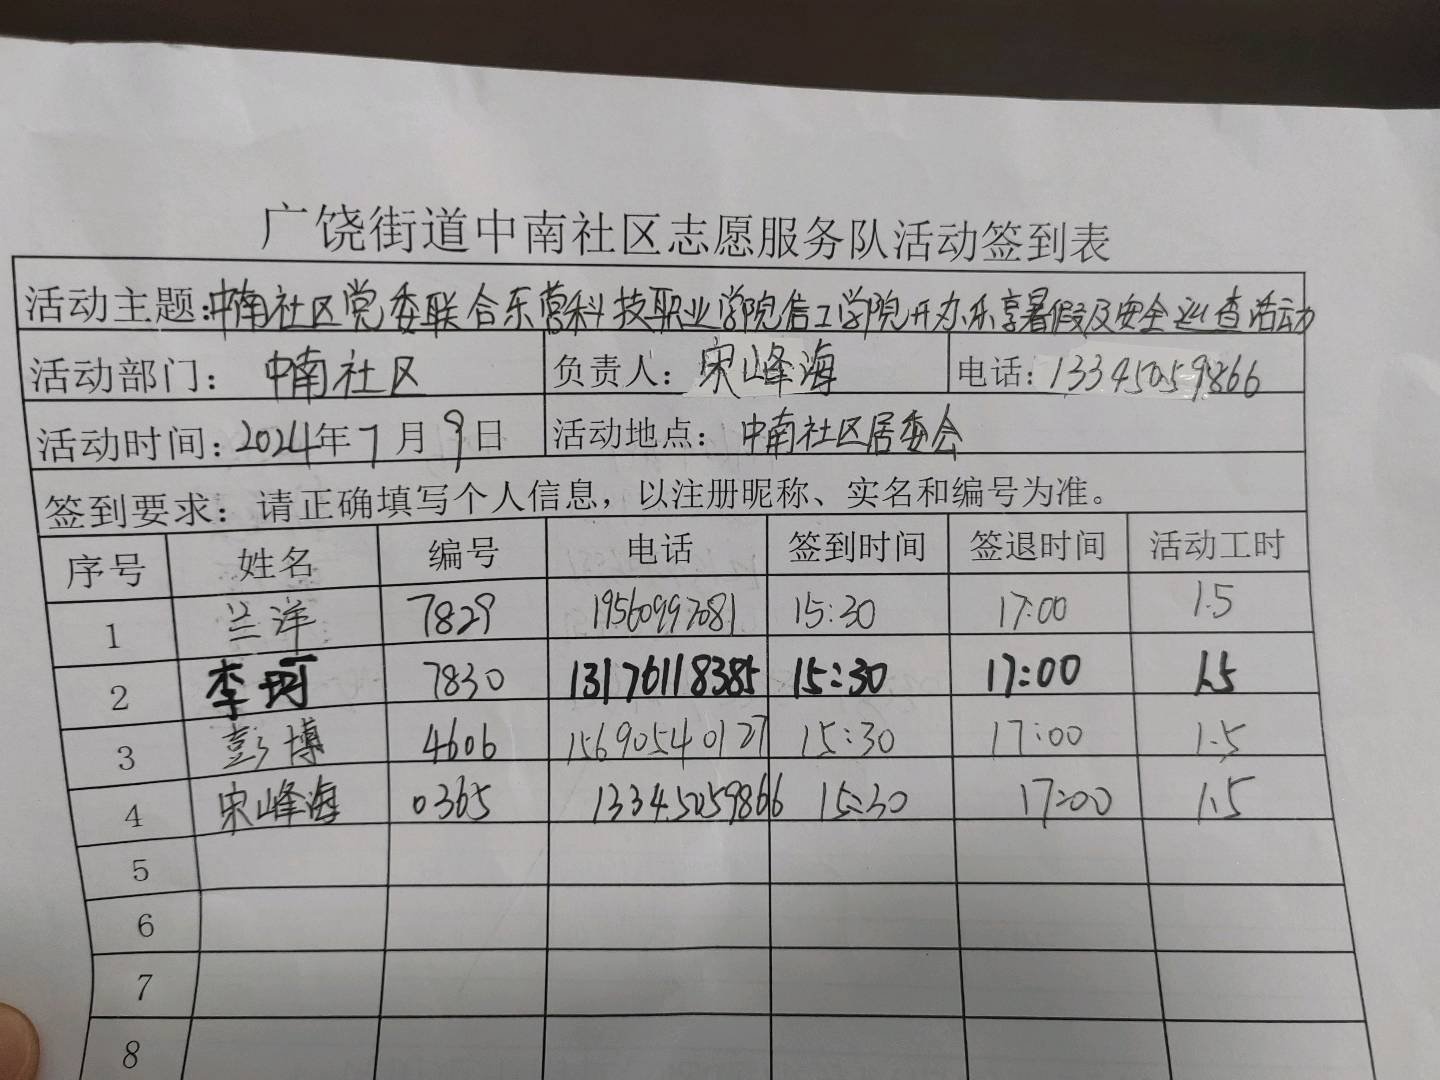 广饶街道中南社区志愿服务队活动签到表
活动主题:中南社区党委联合东营科技职业学院信工学院开办乐享暑假及安全巡查活动
活动部门: 中南社区 负责人: 宋峰海 电话: 13345059866
活动时间: 2024年7月9日 活动地点: 中南社区居委会
签到要求: 请正确填写个人信息，以注册昵称、实名和编号为准。
序号 姓名 编号 电话 签到时间 签退时间 活动工时
1 兰洋 7829 19560997081 15:30 17:00 1.5
2 李珂 7830 13176118385 15:30 17:00 1.5
3 彭博 4606 15690540127 15:30 17:00 1.5
4 宋峰海 0365 13345059866 15:30 17:00 1.5
5
6
7
8